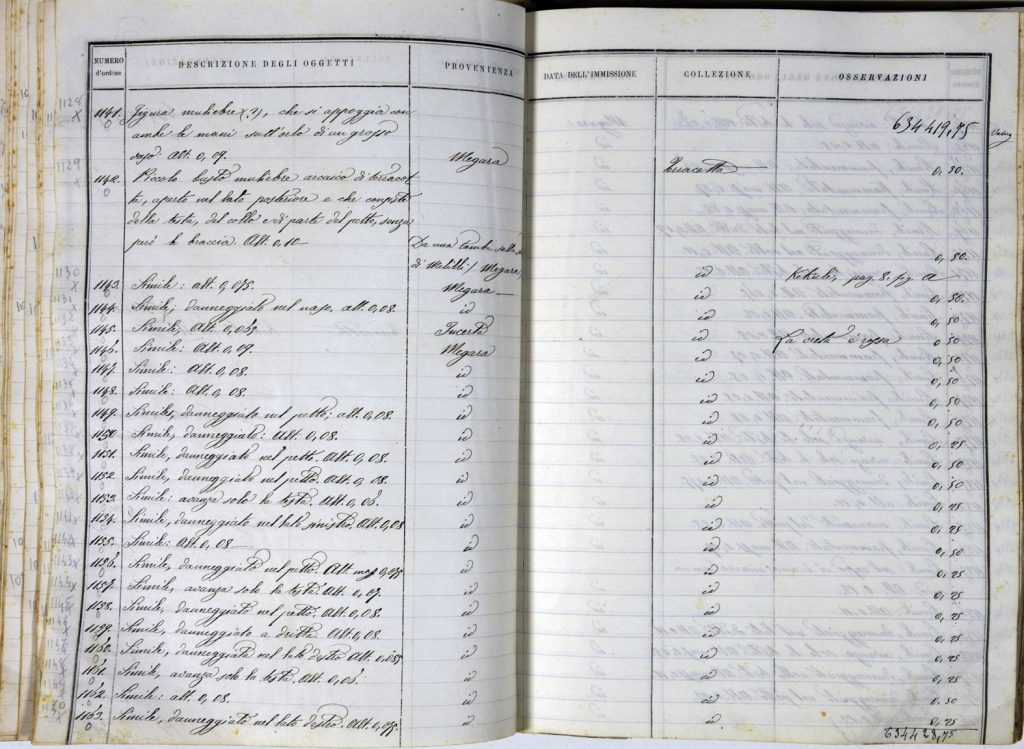 NUMERO d'ordine DESCRIZIONE DEGLI OGGETTI PROVENIENZA DATA DELL'IMMISSIONE COLLEZIONE OSSERVAZIONI
634419,75
1141. Figura muliebre (?), che si appoggia con
ambe le mani sull'orlo di un grosso
vaso. Alt. 0,09. Megara Terracotta 0,50.
1142. Piccolo busto muliebre arcaico di terracot-
ta, aperto nel lato posteriore e che consta
della testa, del collo e di parte del petto, senza
però le braccia. Alt. 0,10 Da una tomba sulla
di Melilli / Megara id Kekulè, pag. 8. fig. a 0,50.
1143. Simile: alt. 0,075. Megara id 0,50.
1144. Simile, danneggiato nel naso. alt. 0,08. id id 0,50
1145. Simile, Alt. 0,065 Incerta id La creta è rossa 0,50
1146. Simile: Alt. 0,09. Megara id 0,50
1147. Simile: Alt. 0,08. id id 0,50
1148. Simile: Alt. 0,08. id id 0,50
1149. Simile, danneggiato nel petto: alt. 0,08. id id 0,50
1150. Simile, danneggiato: Alt. 0,08. id id 0,25
1151. Simile, danneggiato nel petto. Alt. 0,08. id id 0,50
1152. Simile, danneggiato nel petto. Alt. 0,08. id id 0,50
1153. Simile: avanza solo la testa. Alt. 0,06. id id 0,25
1154. Simile, danneggiato nel lato sinistro. Alt. 0,08 id id 0,25
1155. Simile: Alt. 0,08 id id 0,50
1156. Simile, danneggiato nel petto. Alt. 0,075 id id 0,25
1157. Simile, avanza solo la testa. Alt. 0,07. id id 0,25
1158. Simile, danneggiato nel petto. Alt. 0,08. id id 0,25
1159. Simile, danneggiato a dritta. Alt. 0,08. id id 0,25
1160. Simile, danneggiata nel lato destro. Alt. 0,085 id id 0,25
1161. Simile, avanza solo la testa. Alt. 0,06. id id 0,25
1162. Simile: alt. 0,08. id id 0,50
1163. Simile, danneggiato nel lato destro. Alt. 0,075. id id 0,25
634428,75